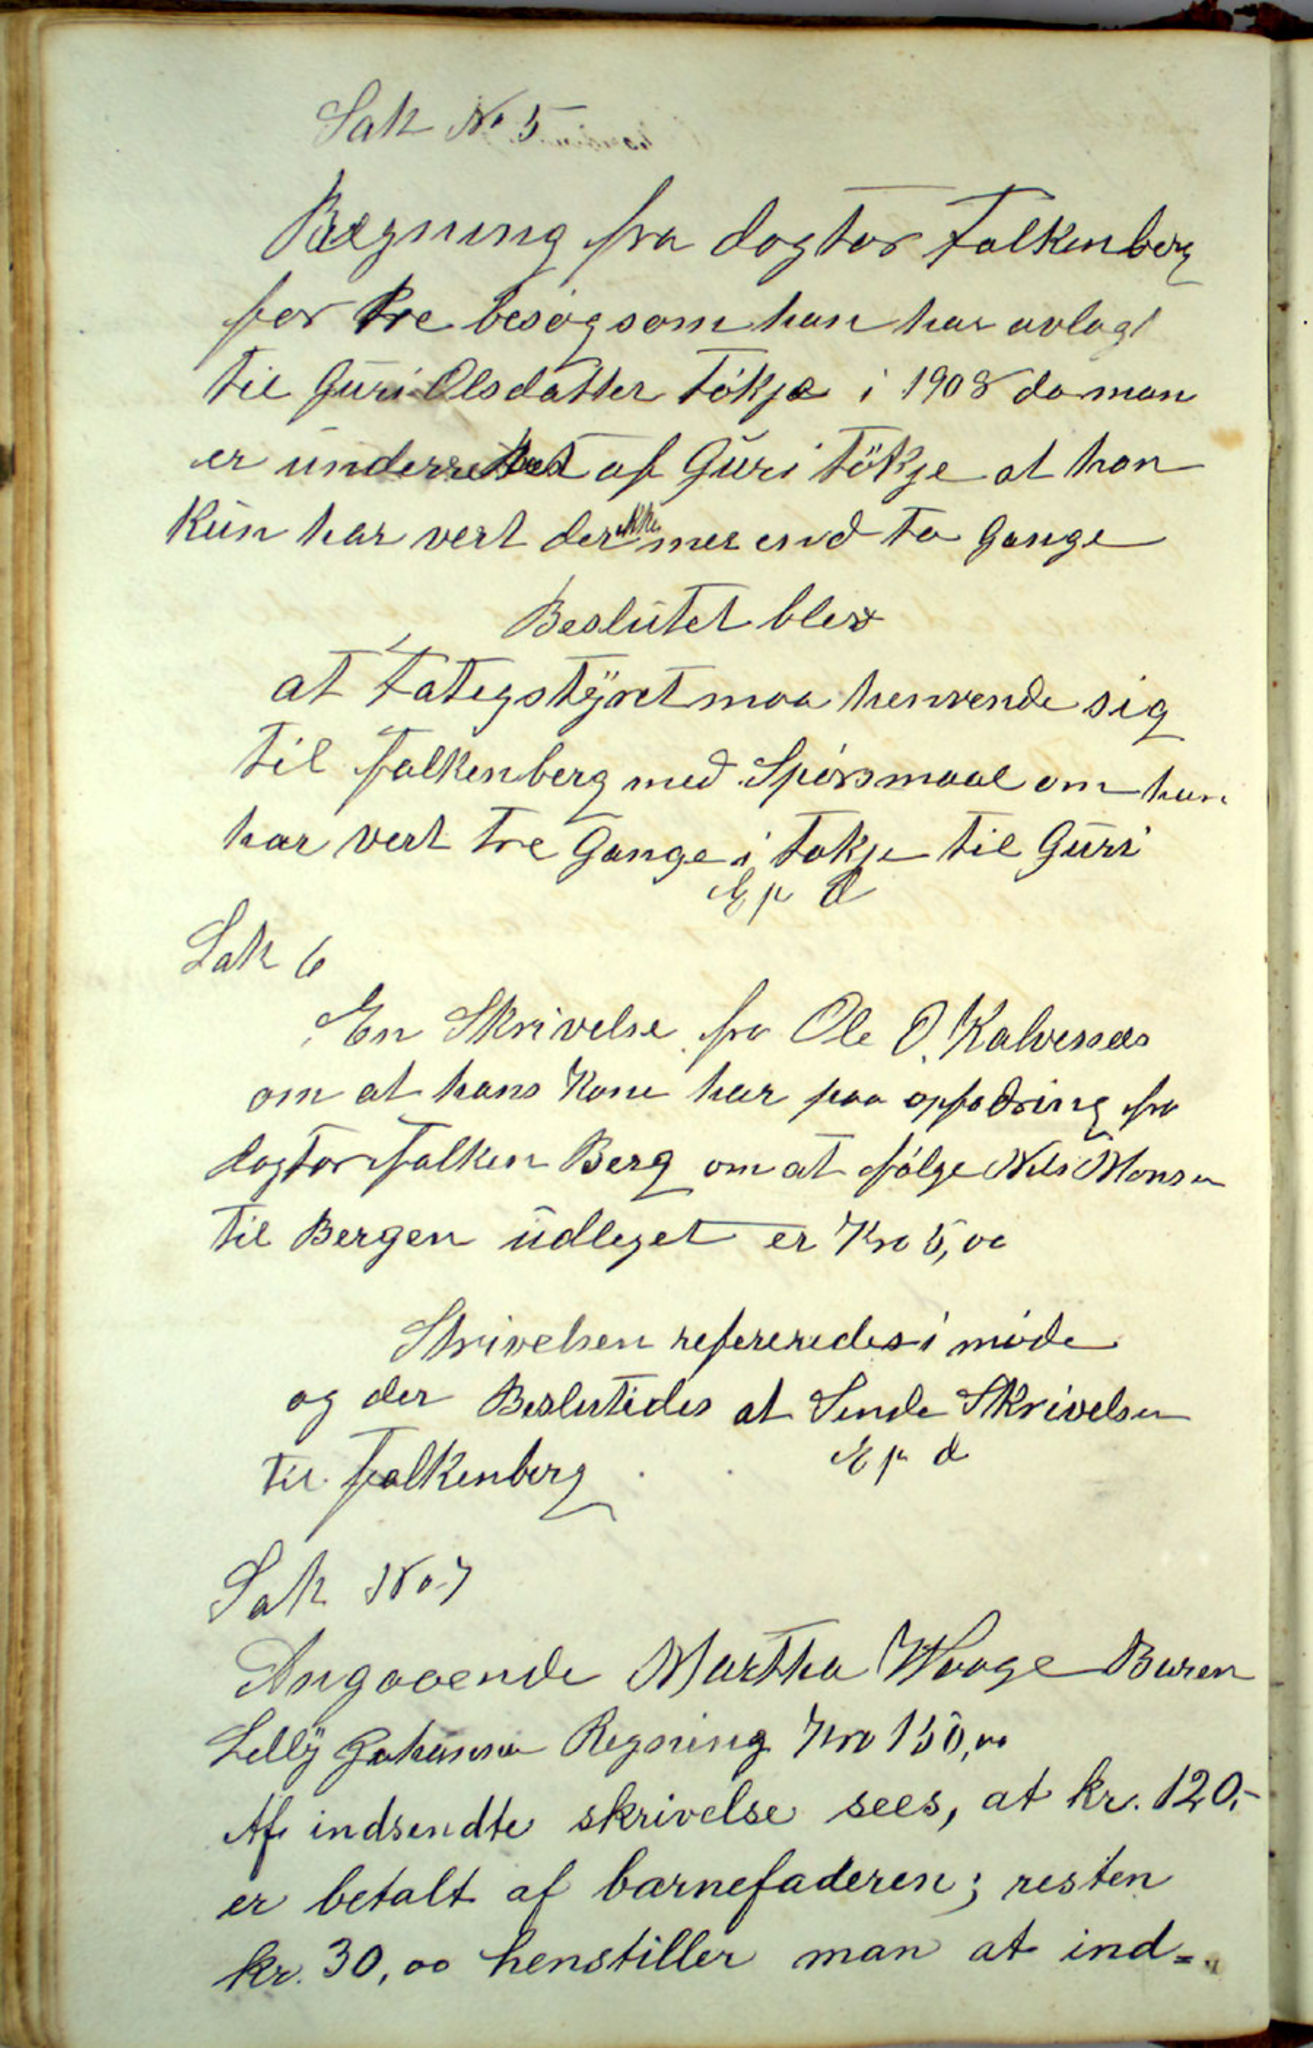 Sak No 5
Regning fra dogtor Falkenberg
for tre besøg som han har avlagt
til Guri Olsdatter Tökje i 1908 da man
er underrettet af Guri Tökje at han
kun har vert der ikke mer end to Gange
Beslutet blev
at Fategstyret maa henvende sig
til Falkenberg med Spörsmaal om han
har vert tre Gange i Tokje til Guri
E p d
Sak 6
En Skrivelse fra Ole O. Kalvenæs
om at hans Kone har paa opfodring fra
dogtor Falken Berg om at følge Nils Monsen
til Bergen udleget er Kro 5,00
Skrivelsen refereredes i møde
og der Beslutedes at Sende Skrivelsen
til Falkenberg
E p d
Sak No 7
Angaaende Martha Waage Buren
Lelly Johanna Regning Kro 150,00
Af indsendte skrivelse sees, at kr. 120.-
er betalt af barnefaderen; resten
kr. 30,00 henstiller man at ind=